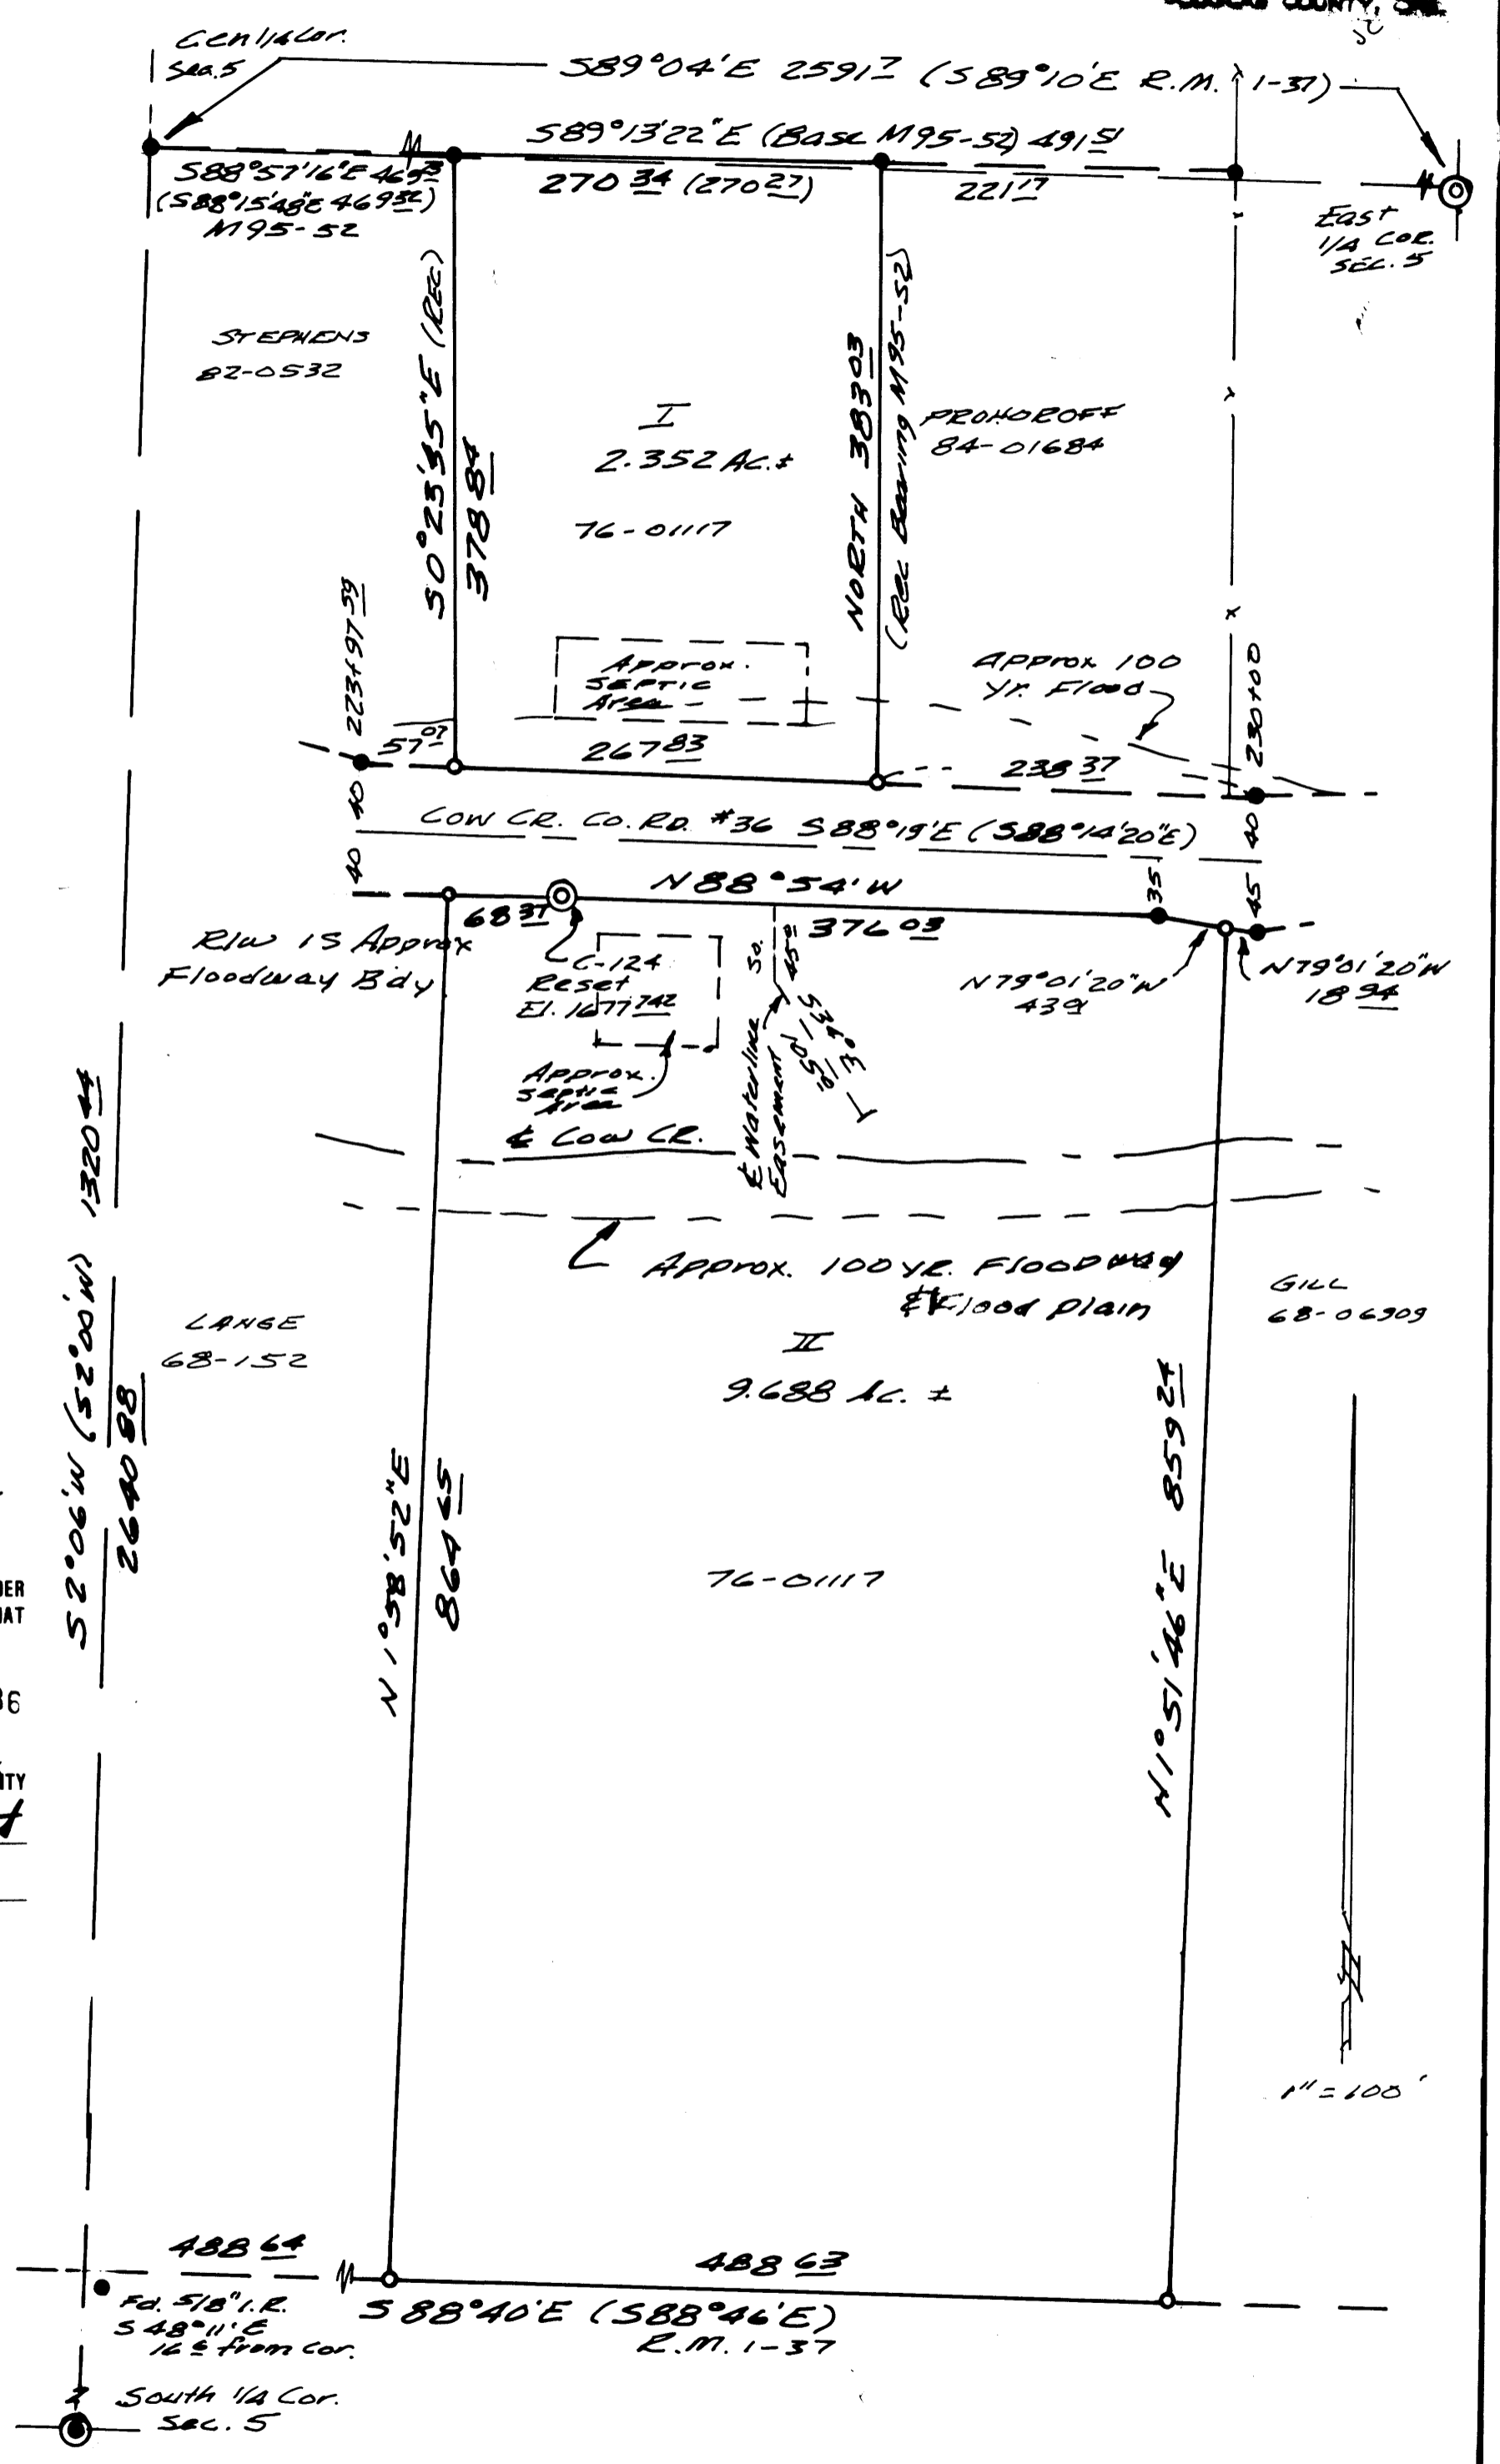 COUNTY,
Cen 1/4 Cor.
Sec. 5
S89°04'E 2591.7 (S89°10'E R.M. 1-37)
S89°13'22"E (Base M95-52) 491.51
S88°57'16"E
(S88°15'48"E 469.32)
M95-52
270.34 (270.27)
221.17
East
1/4 COR.
SEC. 5
STEPHENS
82-0532
S0°23'35"E (REC)
378.84
I
2.352 AC.±
76-01117
NORTH 383.03
(Rec Bearing M95-52)
PROHOROFF
84-01684
223+97.59
Approx.
SEPTIC
Area
Approx 100
Yr. Flood
230+00
57.07
267.83
238.37
40
40
40
COW CR. CO. RD. #36 S88°19'E (S88°14'20"E)
N88°54'W
35
45
68.37
376.03
R/W IS Approx
Floodway Bdy
C-124
Reset
El. 1677.742
So. 45.0
N79°01'20"W
43.91
N79°01'20"W
18.94
Approx.
septic
Area
℄ Waterline
Easement
℄ COW CR.
1320.44
Approx. 100 YR. Floodway
& Flood plain
S2°06'W (S2°00'W)
2640.88
LANGE
68-152
GILL
68-06909
II
9.688 Ac. ±
N1°58'52"E
864.65
N1°51'46"E 859.24
76-01117
1"=100'
488.64
488.63
Fd. 5/8" I.R.
S48°11'E
16.6 from cor.
S88°40'E (S88°46'E)
R.M. 1-37
South 1/4 Cor.
Sec. 5